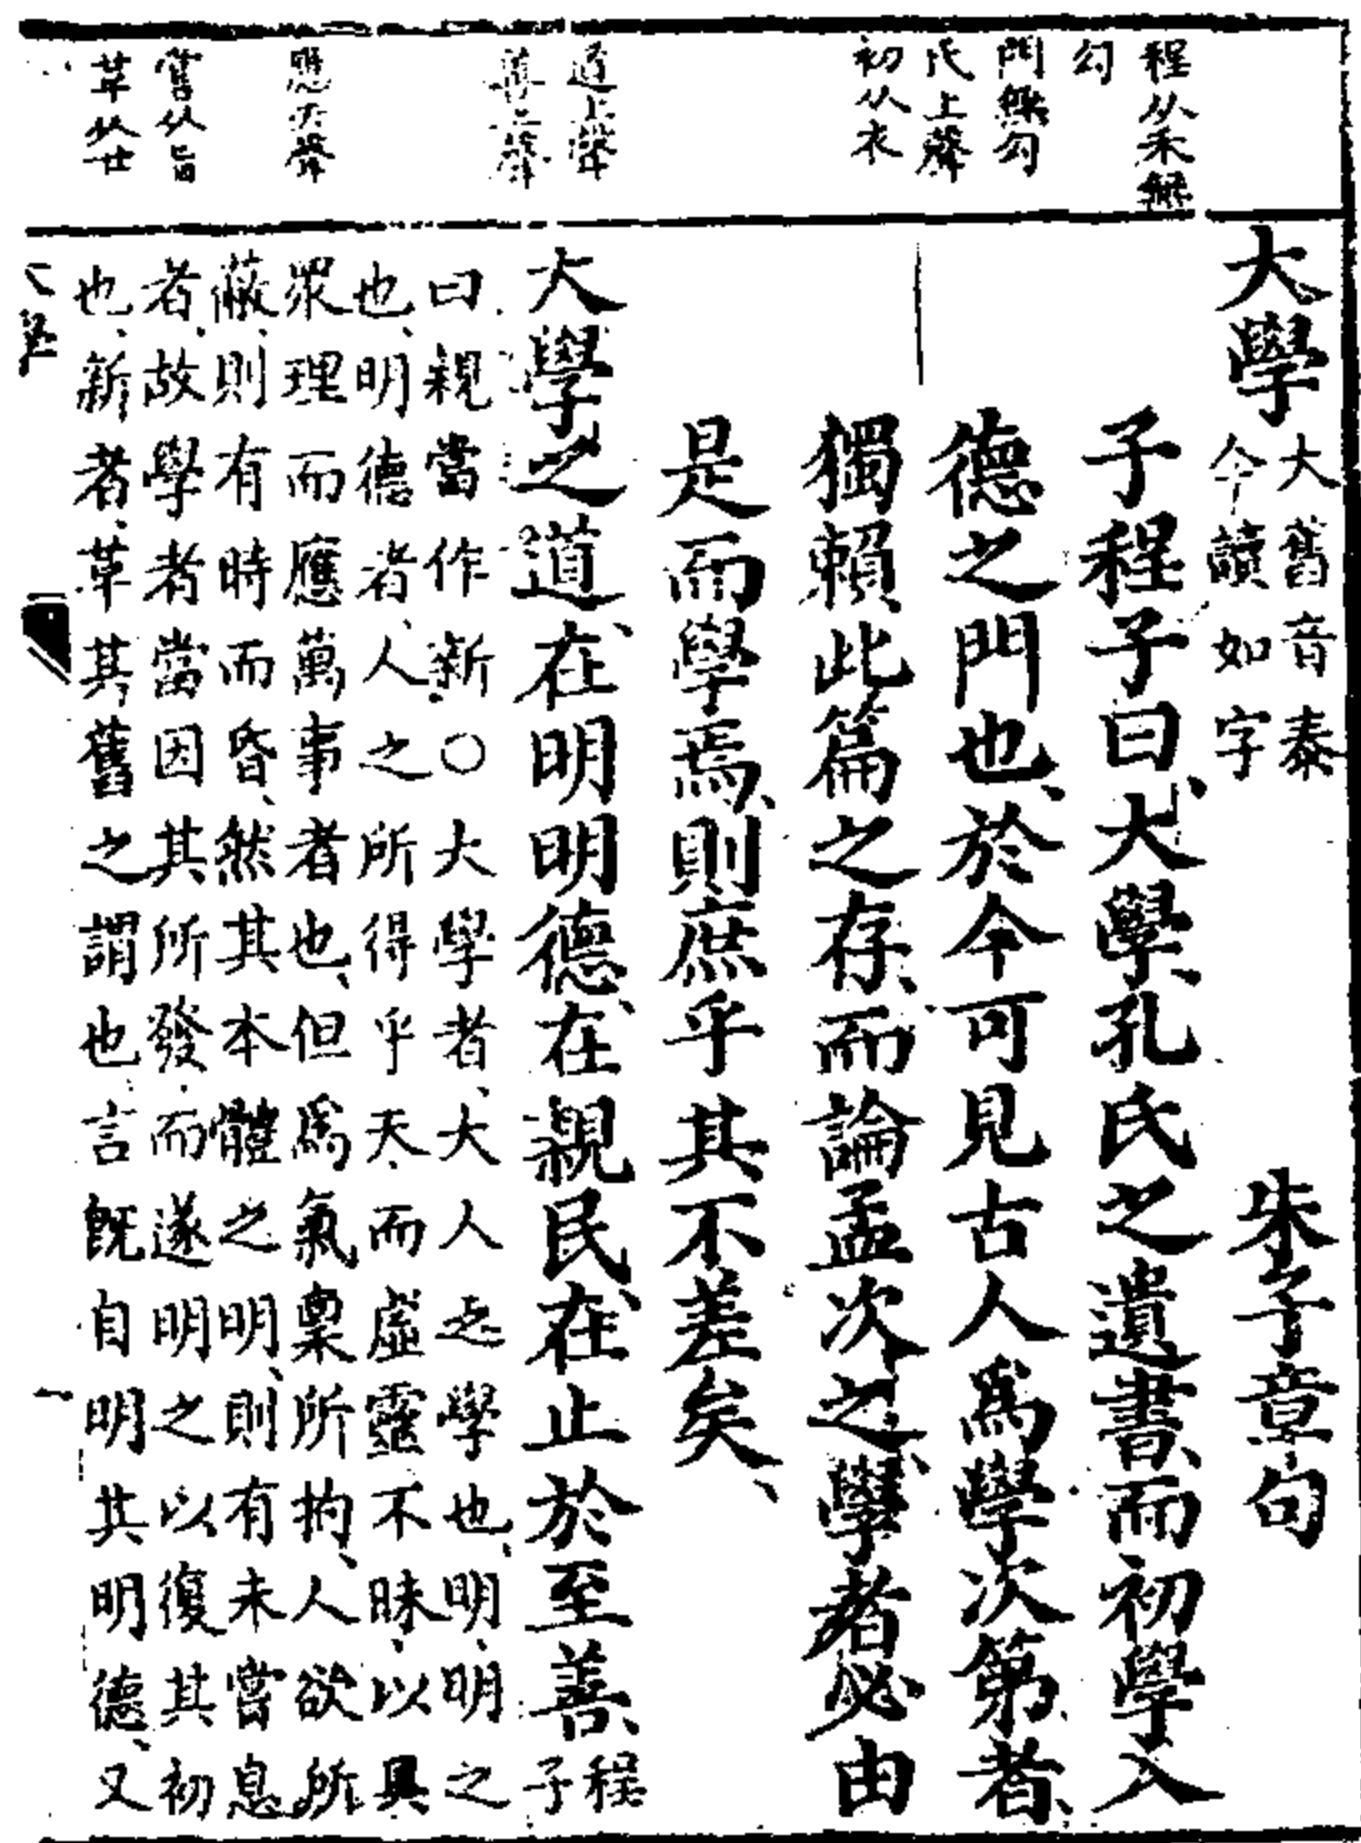 程从禾無
勾
門無勾
氏上聲
初从衣
道上聲
善上聲
應去聲
嘗从旨
革从廿
大學
大舊音泰
今讀如字
朱子章句
子程子曰、大學、孔氏之遺書、而初學入
德之門也、於今可見古人爲學次第者、
獨賴此篇之存、而論孟次之、學者必由
是而學焉、則庶乎其不差矣、
大學之道、在明明德、在親民、在止於至善、
程
子
曰親當作新、○大學者、大人之學也、明、明之
也、明德者、人之所得乎天、而虛靈不昧、以具
眾理而應萬事者也、但爲氣稟所拘、人欲所
蔽、則有時而昏、然其本體之明、則有未嘗息
者、故學者當因其所發、而遂明之以復其初
也、新者、革其舊之謂也、言既自明其明德、又
一